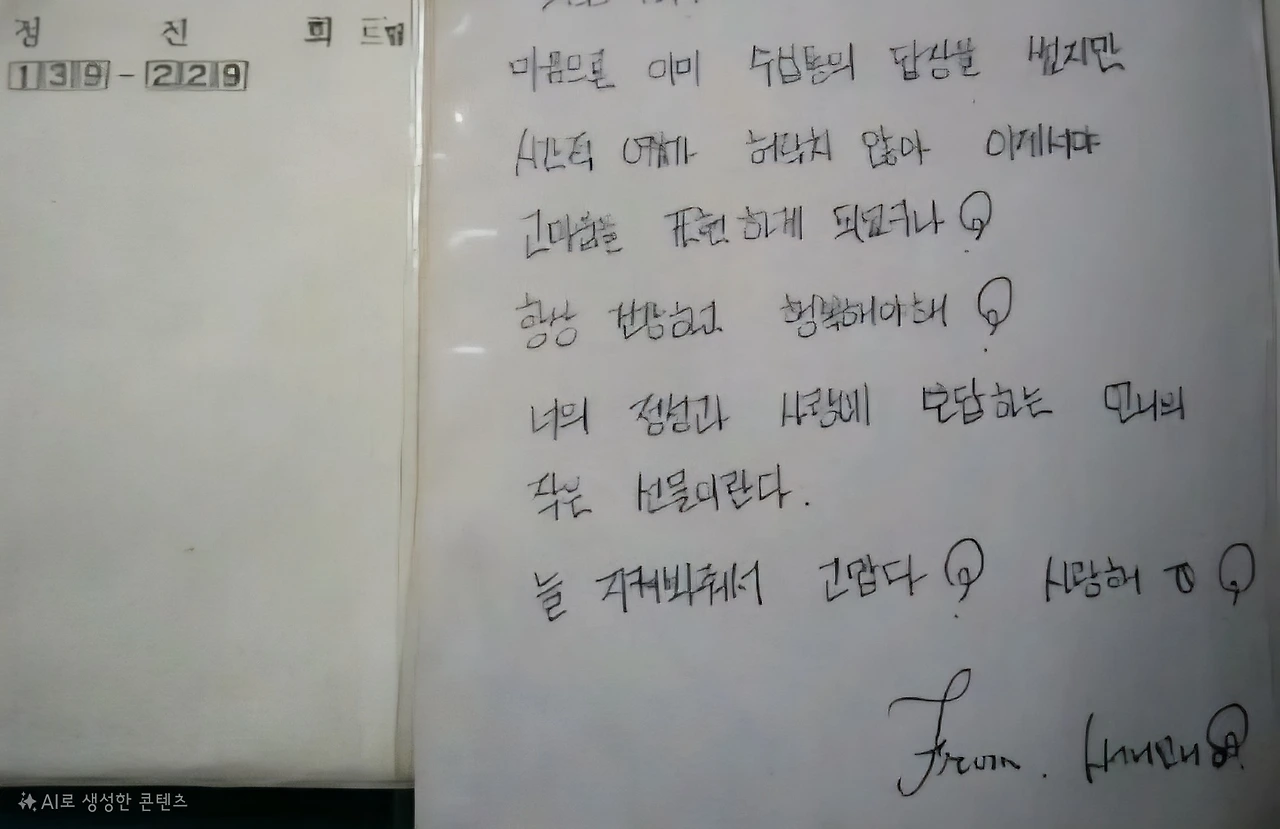 정 진 희 드림
139-229
마음으로 이미 수십통의 답장을 썼지만
시간적 여유가 허락치 않아 이제서야
고마움을 표현하게 되는구나
항상 건강하고 행복해야해
너의 정성과 사랑에 보답하는 언니의
작은 선물이란다.
늘 지켜봐줘서 고맙다 사랑해
From.
AI로 생성한 콘텐츠